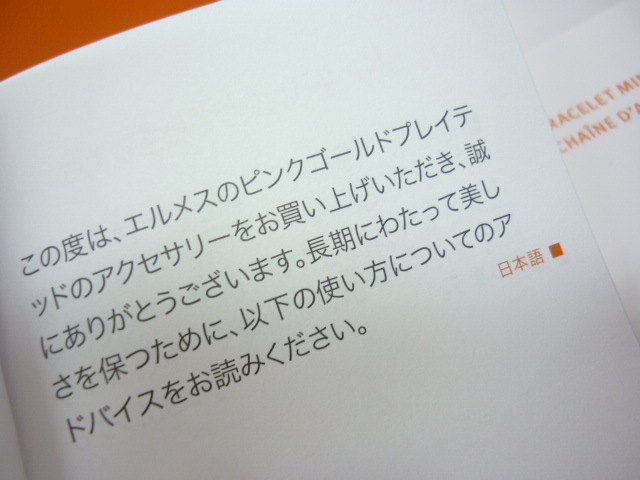 この度は、エルメスのピンクゴールドプレイテ
ッドのアクセサリーをお買い上げいただき、誠
にありがとうございます。長期にわたって美し
さを保つために、以下の使い方についてのア
ドバイスをお読みください。
日本語
RACELET
CHAÎNE